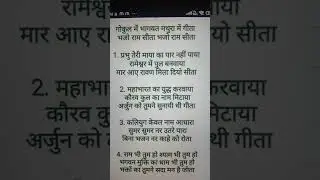 गोकुल में भागवत मथुरा में गीता
भजो राम सीता भजो राम सीता
1. प्रभु तेरी माया का पार नहीं पाया
रामेश्वर में पुल बनवाया
मार आए रावण मिला दियो सीता
2. महाभारत का युद्ध करवाया
कौरव कुल का नाम मिटाया
अर्जुन को तुमने सुनायी थी गीता
3. कलियुग केवल नाम आधारा
सुमर सुमर नर उतरे पारा
बिना भजन नर काहे को रीता
4. राम भी तुम हो श्याम भी तुम हो
भगवन मुक्ति का धाम भी तुम हो
भक्तों का तुमने सदा मन है जीता